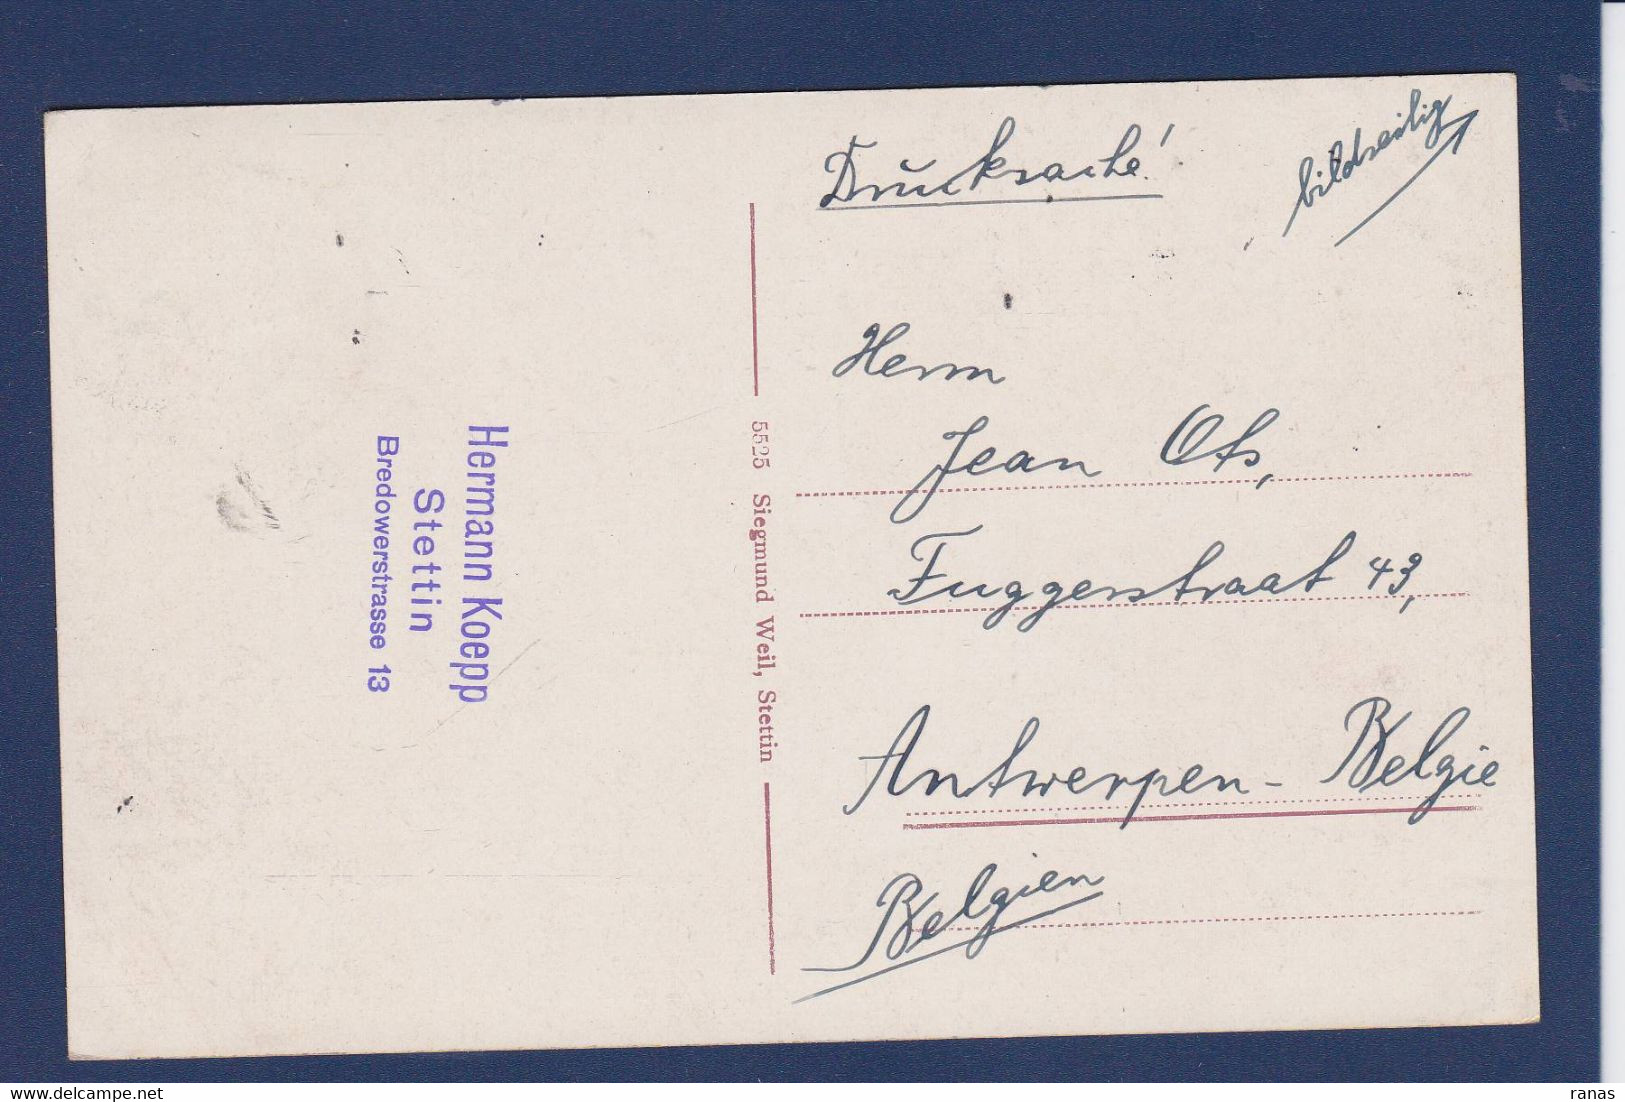 Drucksache!
bildseitig
Herrn
Jean Ots,
Fuggerstraat 43,
Antwerpen - Belgie
Belgien
5525 Siegmund Weil, Stettin
Hermann Koepp
Stettin
Bredowerstrasse 13
ranas